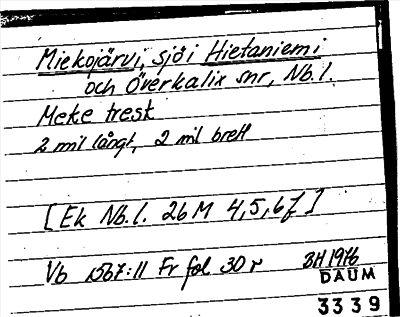 Miekojärvi, sjö i Hietaniemi
och Överkalix snr, Nb.l.
Meke tresk
2 mil långt, 2 mil brett
[Ek Nb.l. 26M 4,5,6f]
Vb 1567:11 Fr fol 30 r BH 1976
DAUM
3339